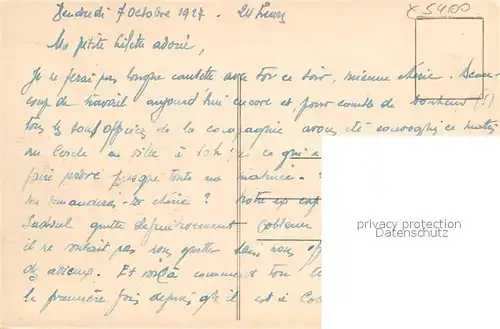 Vendredi 7 Octobre 1927. 21 heures
x5400
Ma petite Lilette adorée,
Je ne ferai pas longue causette avec toi ce soir, mienne chérie. Beau-
coup de travail aujourd'hui encore et, pour comble de bonheur (!)
tous les sous officiers de la compagnie avons été convoqués ce matin
au Cercle en ville à 10h ce qui a
faire perdre presque toute ma matinée.
me demanderas-tu chérie ? Notre ex cap
quitte définitivement Coblence
il ne voulait pas nous quitter sans nous off
des adieux. Et voilà comment ton
la première fois depuis qu'il est à Cob
privacy protection
Datenschutz